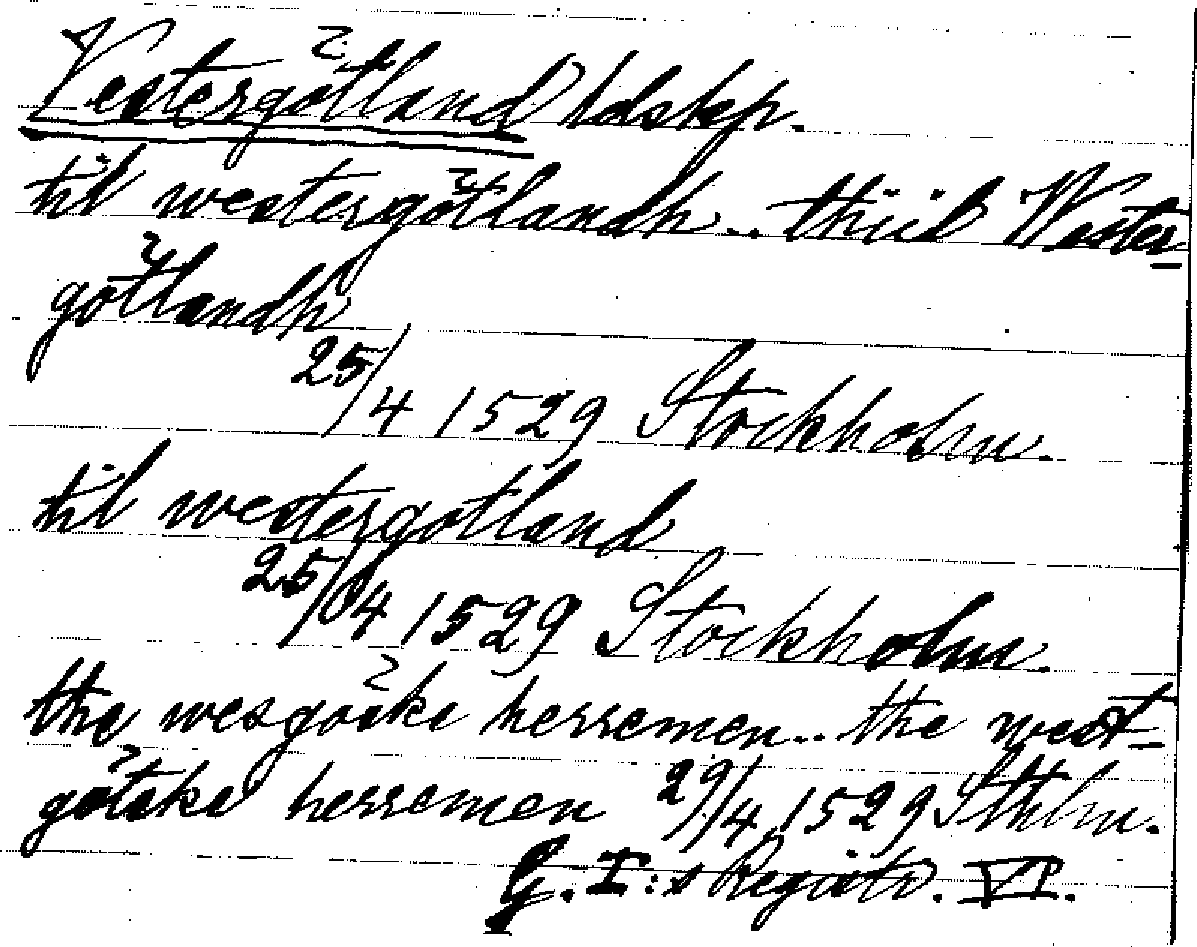 Vestergötland ldskp.
til westergötlandh .. thiil Wester-
götlandh
25/4 1529 Stockholm.
til westergotland
25/4 1529 Stockholm.
the wesgöske herremen .. the west-
götske herremen 29/4 1529 Sthlm.
G. I:s Registr. VI.